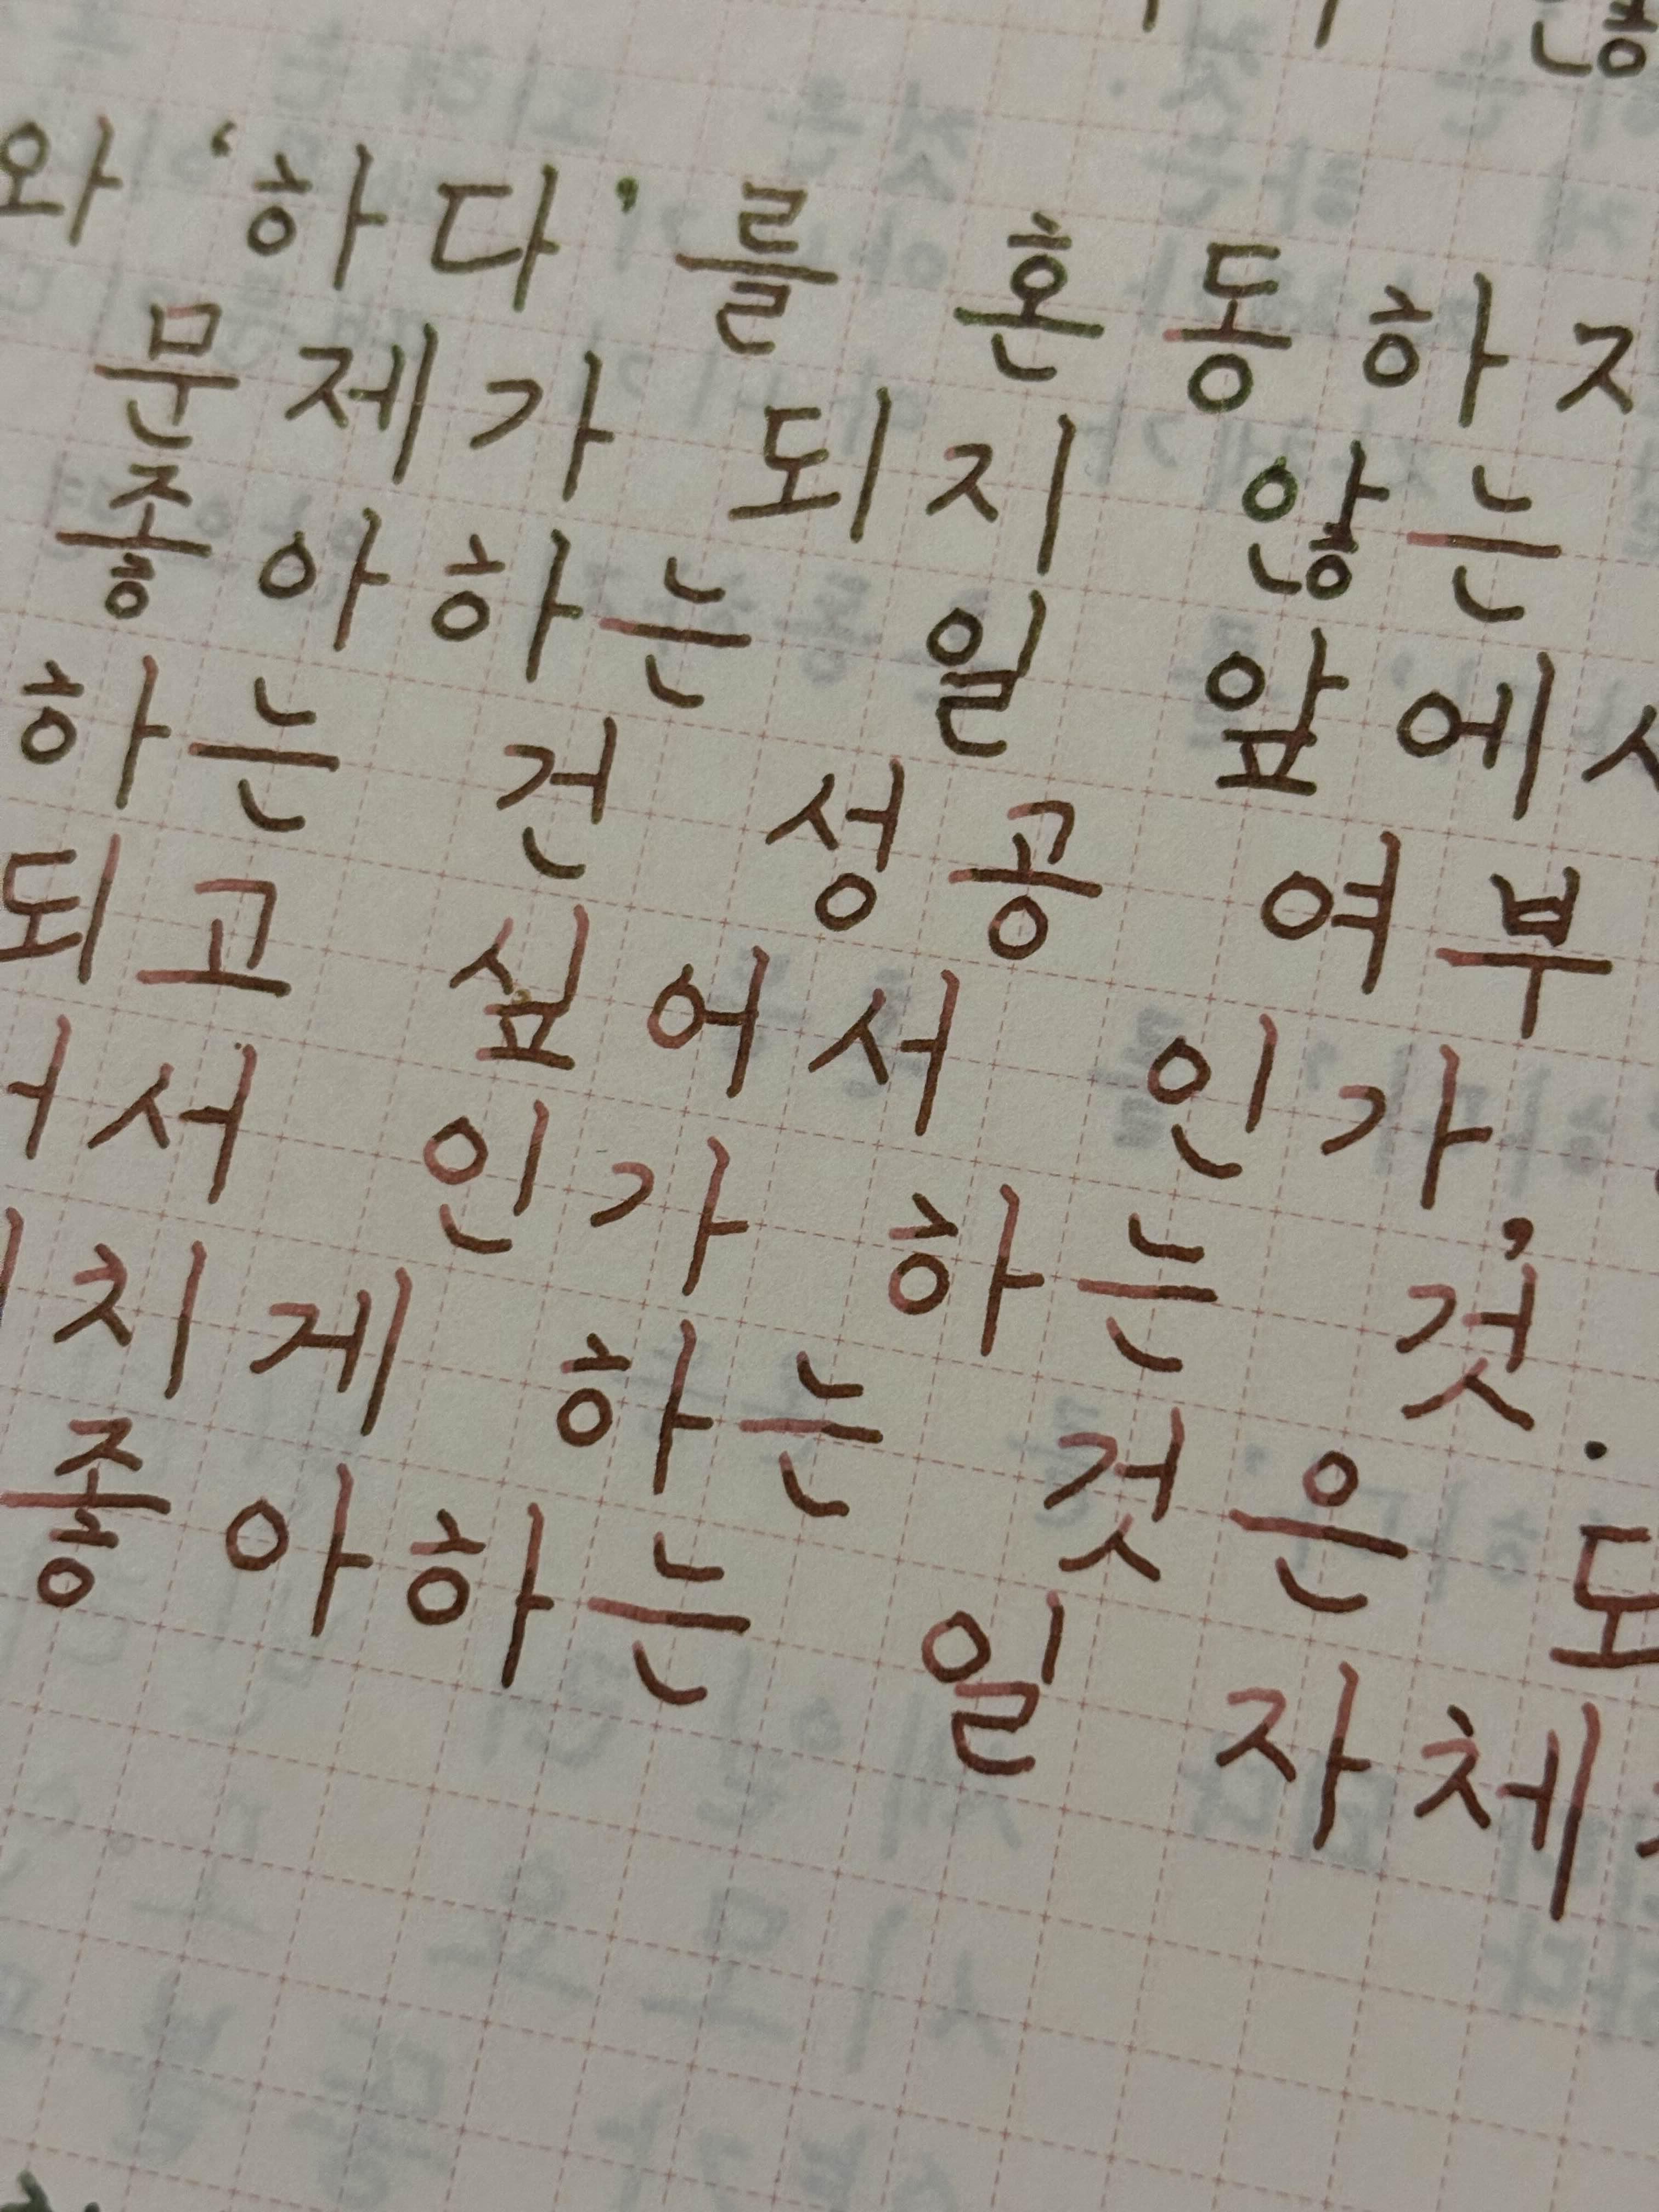 않
와 '하다'를 혼동하지
문제가 되지 않는
좋아하는 일 앞에서
하는 건 성공 여부
되고 싶어서 인가,
서 인가 하는 것.
치게 하는 것은 되
좋아하는 일 자체